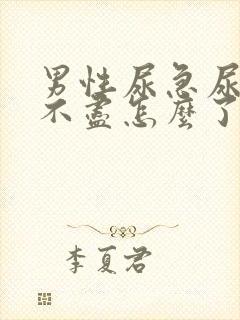 男性尿急尿
不盡怎麼了
李夏君